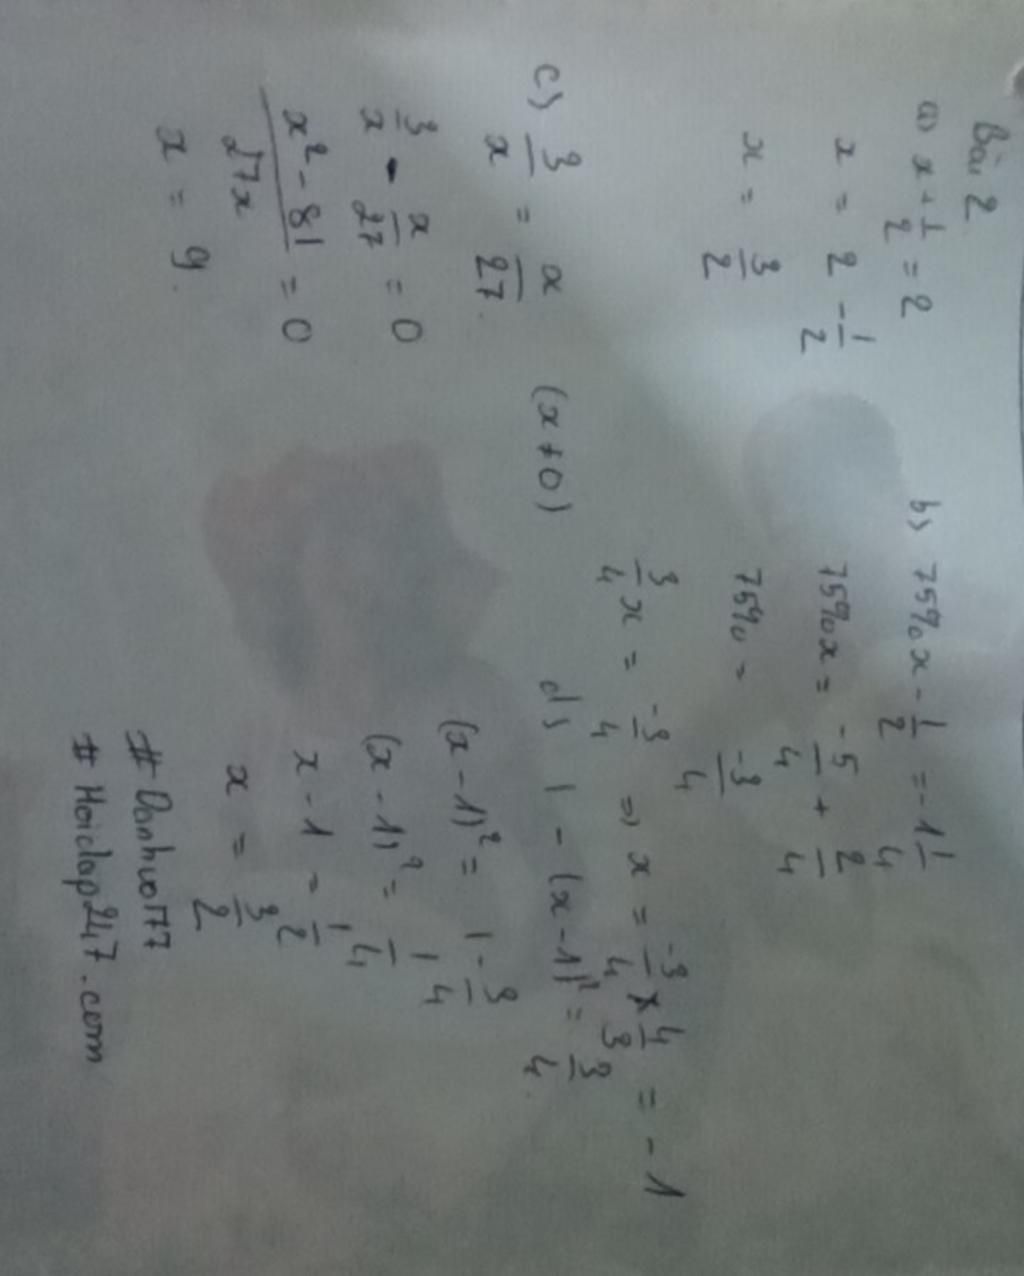 Bài 2
a) x + 1/2 = 2
x = 2 - 1/2
x = 3/2
b) 75%x - 1/2 = -1 1/4
75%x = -5/4 + 2/4
75% = -3/4
3/4 x = -3/4 => x = -3/4 x 4/3 = -1
c) 3/x = x/27 (x ≠ 0)
3/x - x/27 = 0
x² - 81/27x = 0
x = 9.
d) 1 - (x - 1)² = 3/4.
(x - 1)² = 1 - 3/4
(x - 1)² = 1/4
x - 1 = 1/2
x = 3/2
# Danhvo177
# Hoidap247.com